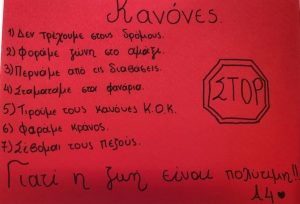 Κανόνες.
1) Δεν τρέχουμε στους δρόμους.
2) Φοράμε ζώνη στο αμάξι.
3) Περνάμε από τις διαβάσεις.
4) Σταματάμε στα φανάρια.
ΣΤΟΡ
5) Τηρούμε τους κανόνες Κ.Ο.Κ.
6) Φοράμε κράνος.
7) Σέβομαι τους πεζούς.
Γιατί η ζωή είναι πολύτιμη!!
Δ4